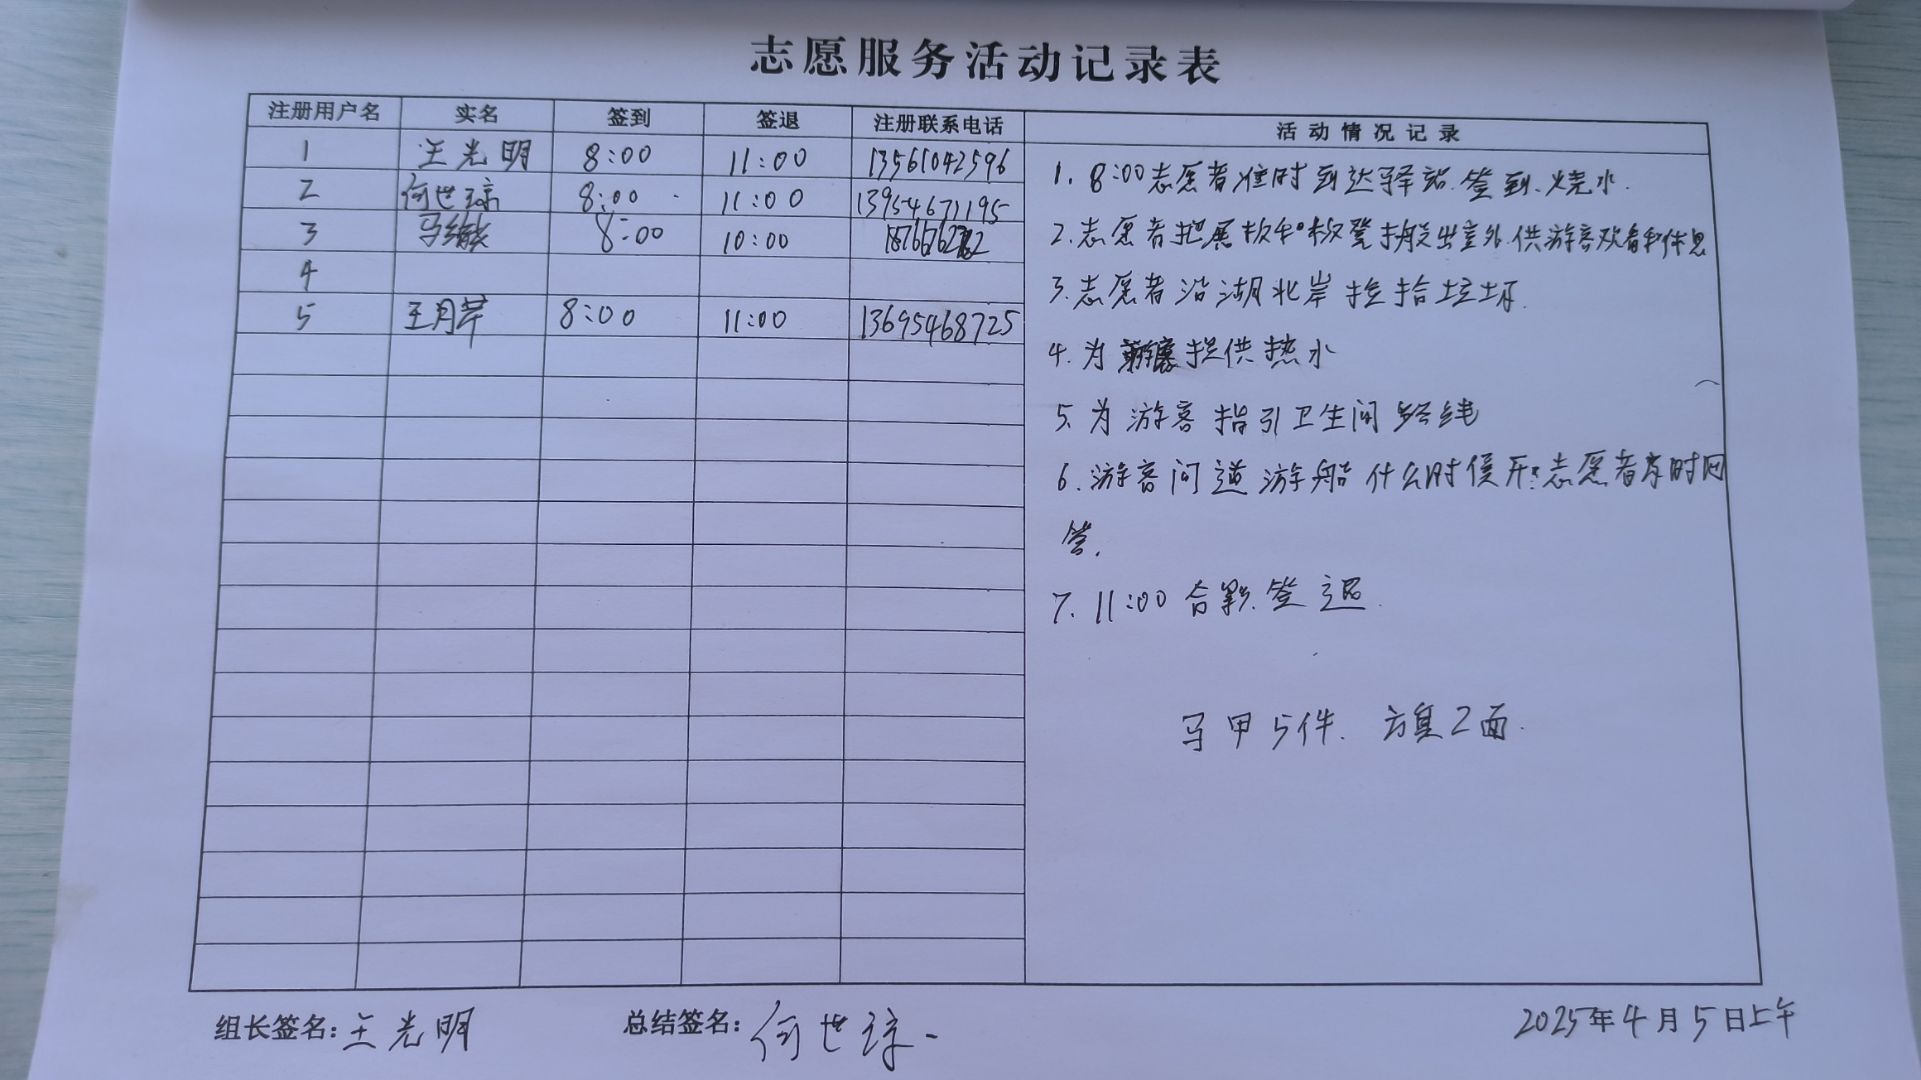 志愿服务活动记录表
注册用户名 实名 签到 签退 注册联系电话 活动情况记录
1 王光明 8:00 11:00 13561042596
2 何世琼 8:00 11:00 13954671195
3 马 8:00 10:00
4
5 王月芹 8:00 11:00 13695468725
1. 8:00志愿者准时到达驿站.签到.烧水.
2.志愿者把展板和板凳搬出室外.供游客观看和休息
3.志愿者沿湖北岸捡拾垃圾.
4.为游客提供热水
5.为游客指引卫生间路线
6.游客问道游船什么时候开?志愿者及时回
答.
7. 11:00合影.签退.
马甲5件. 方真2面.
组长签名:王光明 总结签名:何世琼 2025年4月5日上午